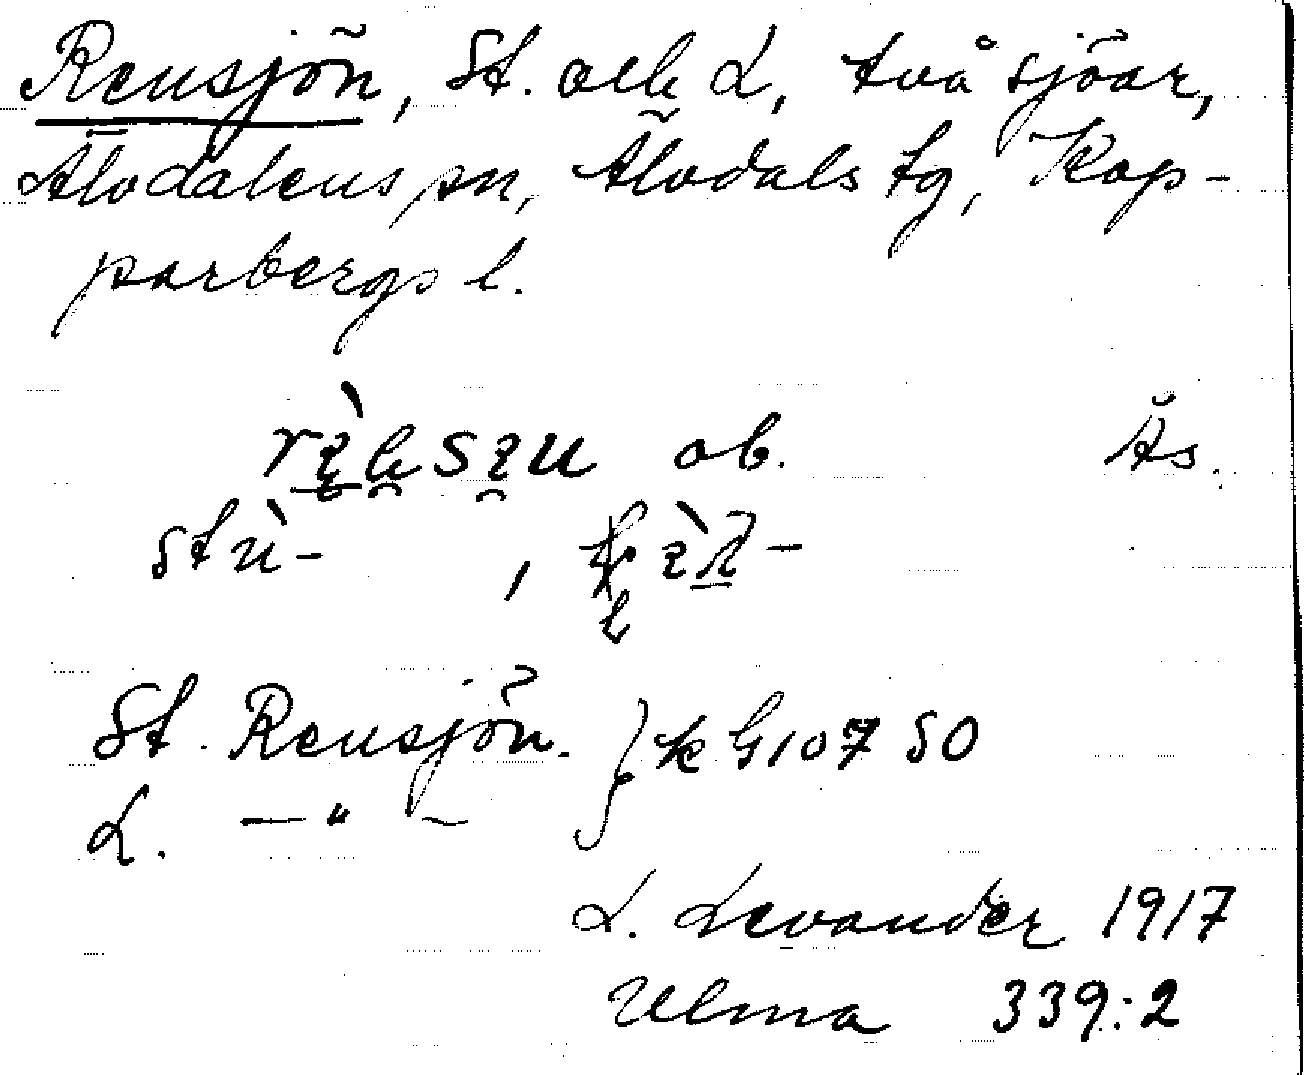 Rensjön, St. och L, två sjöar,
Älvdalens sn, Älvdals tg, Kop-
parbergs l.
ob. Ås.
stù- ,
St. Rensjön. } kG 107 SO
L. —"—
L. Levander 1917
Ulma 339:2